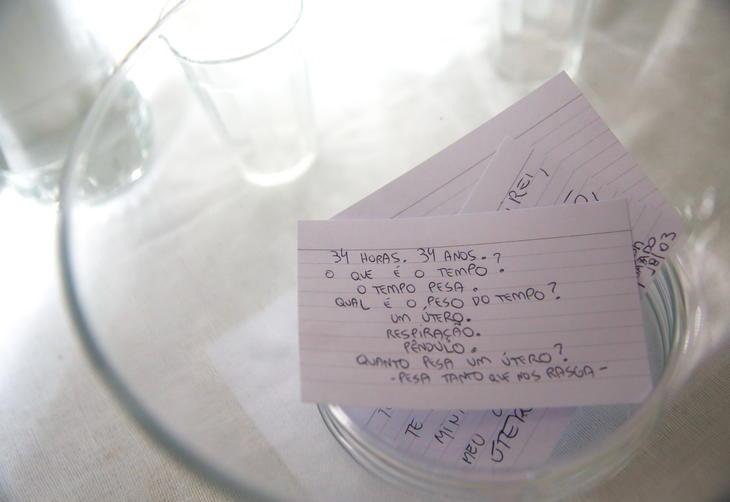 34 HORAS. 34 ANOS. ?
O QUE É O TEMPO .
O TEMPO PESA .
QUAL É O PESO DO TEMPO?
UM ÚTERO.
RESPIRAÇÃO.
PÊNDULO .
QUANTO PESA UM ÚTERO?
- PESA TANTO QUE NOS RASGA -
REI,
18/03
TE
MINH
MEU
ÚTER